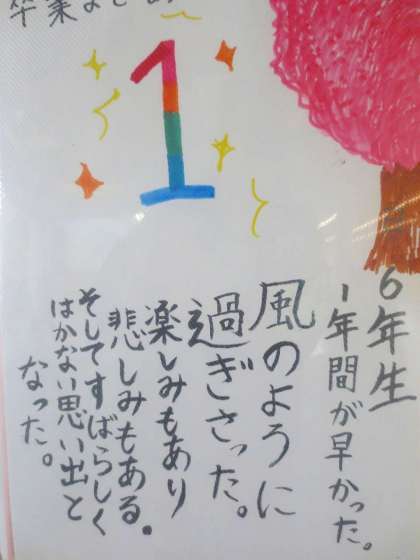 卒業まであ
1
6年生
1年間が早かった。
風のように
過ぎさった。
楽しみもあり
悲しみもある.
そしてすばらしく
はかない思い出と
なった。